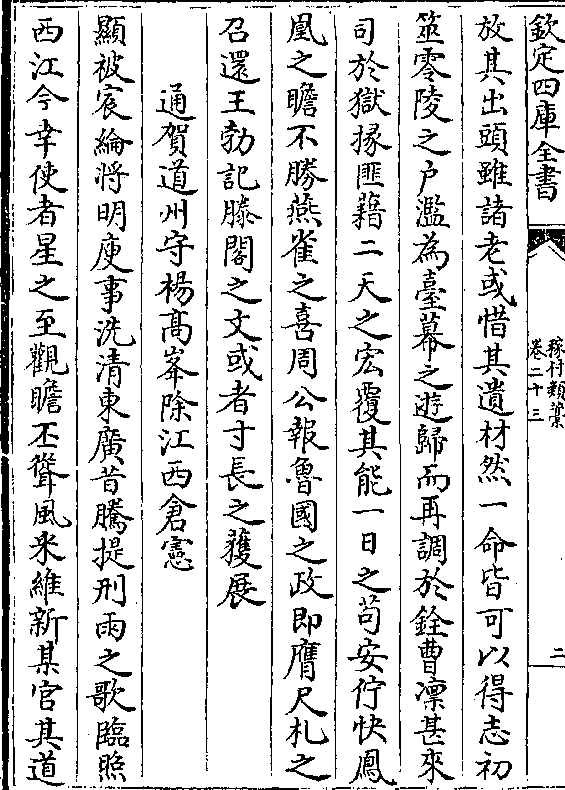 欽定四庫全書
稼村類藁
卷二十三
二
放其出頭雖諸老或惜其遺材然一命皆可以得志初
筮零陵之户濫為臺幕之遊歸而再調於銓曹凛甚來
司於獄掾匪藉二天之宏覆其能一日之苟安佇快鳳
凰之瞻不勝燕雀之喜周公報魯國之政即膺尺札之
召還王勃記滕閣之文或者寸長之獲展
通賀道州守楊髙峯除江西倉憲
顯被宸綸將明庾事洗清東廣昔騰提刑雨之歌臨照
西江今幸使者星之至觀瞻丕聳風采維新某官其道